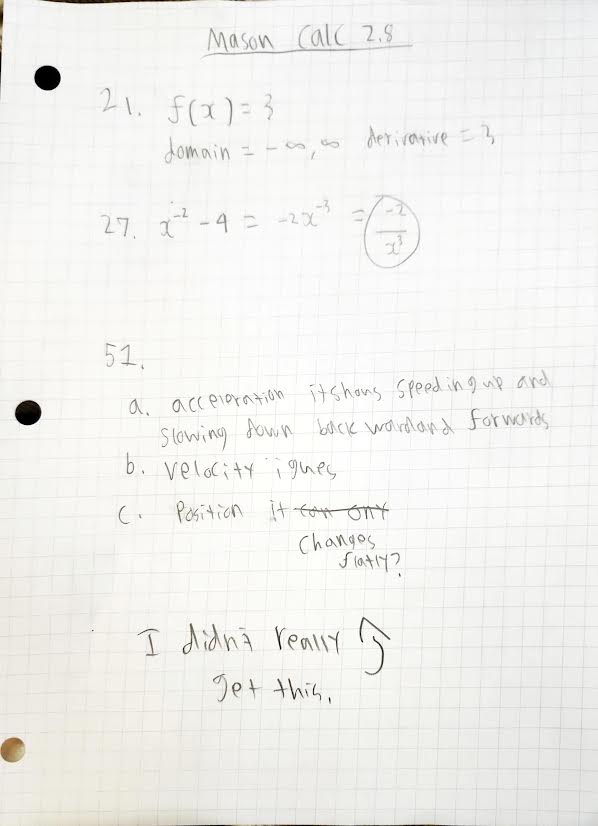 Mason Calc 2.8
21. f(x) = 3
domain = -∞, ∞ derivative = 3
27. x^-2 - 4 = -2x^-3 = -2/x^3
51.
a. acceleration it shows speeding up and
slowing down backward and forwards
b. velocity i gues
c. Position it can ony
changes
flatly?
I didn't really
get this.